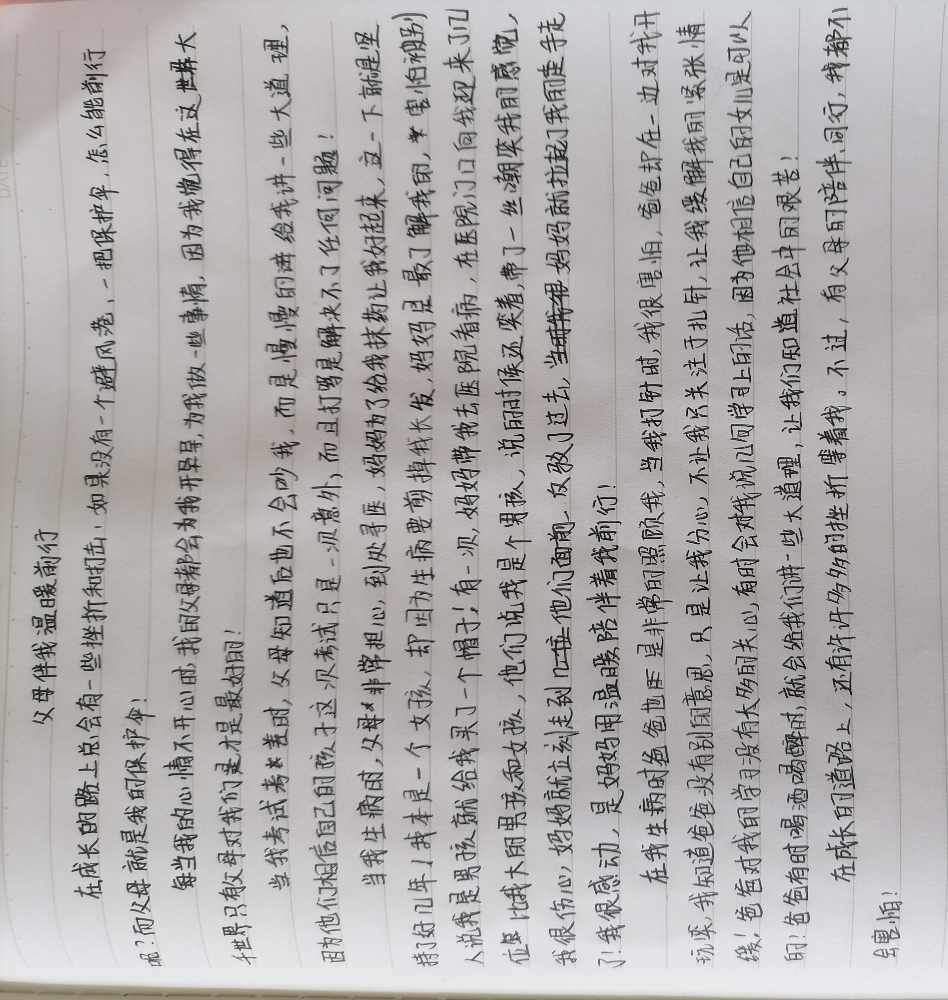 父母伴我温暖前行
在成长的路上总会有一些挫折和打击，如果没有一个避风港，一把保护伞，怎么能前行
呢？而父母就是我的保护伞！
每当我的心情不开心时，我的父母都会为我开导，为我做一些事情，因为我觉得在这世界大
世界只有父母对我们是才是最好的！
当我考试考差时，父母知道后也不会吵我，而是慢慢的讲给我讲一些大道理，
因为他们相信自己的孩子这次考试只是一次意外，而且打骂是解决不了任何问题！
当我生病时，父母非常担心，到处寻医，妈妈为了给我抹药让我好起来，这一下就是坚
持了好几年！我本是一个女孩，却因为生病要剪掉我长发，妈妈是最了解我的，害怕被别
人说我是男孩就给我买了一个帽子！有一次，妈妈带我去医院看病，在医院门口向我迎来了几
位比我大的男孩和女孩，他们说我是个男孩，说的时候还笑着，带了一丝嘲笑我的感觉，
我很伤心，妈妈就立刻走到他们面前，反驳了过去，妈妈就拉起了我的手走
了！我很感动，是妈妈用温暖陪伴着我前行！
在我生病时爸爸也是非常的照顾我，当我打针时，我很害怕，爸爸却在一边对我开
玩笑，我知道爸爸没有别的意思，只是让我分心，不让我只关注于扎针，让我缓解我的紧张情
绪！爸爸对我的学习没有大多的关心，有时会对我说几句学习上的话，因为他相信自己的女儿是可以
的！爸爸有时喝酒喝醉时，就会给我们讲一些大道理，让我们知道社会中的艰苦！
在成长的道路上，还有许许多多的挫折等着我。不过，有父母的陪伴、同行，我都不
会害怕！